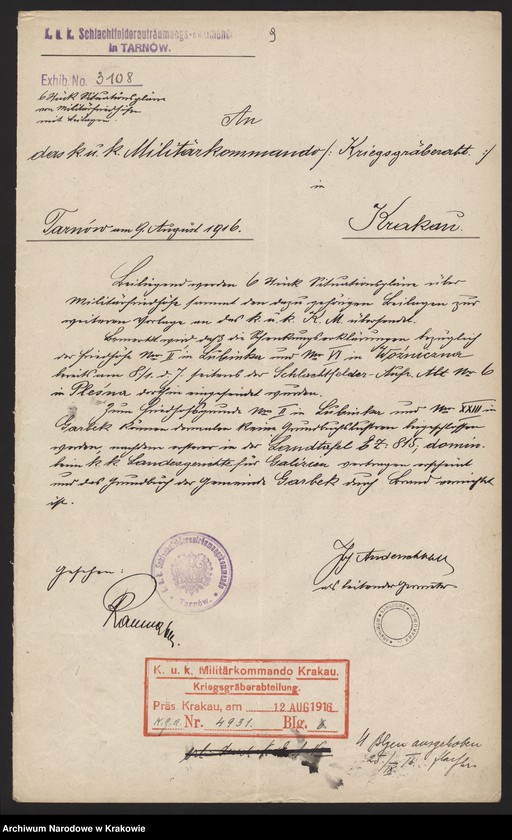 K. u. k. Schlachtfelderaufräumungs-
in TARNÓW.
9
Exhib. No. 3108
6 Stück Situationspläne
von Militärfriedhöfe
mit Beilagen.
An
das k. u. k. Militärkommando /: Kriegsgräberabt. :/
in
Tarnów am 9. August 1916.
Krakau.
Beiliegend werden 6 Stück Situationspläne über
Militärfriedhöfe sammt den dazu gehörigen Beilagen zur
weiteren Vorlage an das k. u. k. K. M. übersendet.
Bemerkt wird, daß die Schenkungserklärungen bezüglich
der Friedhöfe Nro II in Lubinka und Nro VI in Woźniczna
bereits am 8/1. d. J. seitens der Schlachtfelder-Aufr. Abt. Nro 6
in Pleśna dorthin eingesendet wurden.
Zum Friedhofsgrunde Nro II in Lubinka und Nro XXIII in
Garbek können dermalen keine Grundbuchs angeschlossen
werden, nachdem ersterer in der Landtafel EZ: 815, domin.
beim k. k. Landesgericht für Galizien vertragen erscheint
und das Grundbuch der Gemeinde Garbek durch Brand vernichtet
ist.
Gesehen:
K. u. k. Schlachtfelderaufräumungskommando
Tarnów.
als leitender Geometer
K. u. k. Militärkommando Krakau.
Kriegsgräberabteilung.
Präs. Krakau, am 12 AUG 1916
K.g.a. Nr. 4931. Blg.
4 Blgen ausgehoben
Archiwum Narodowe w Krakowie